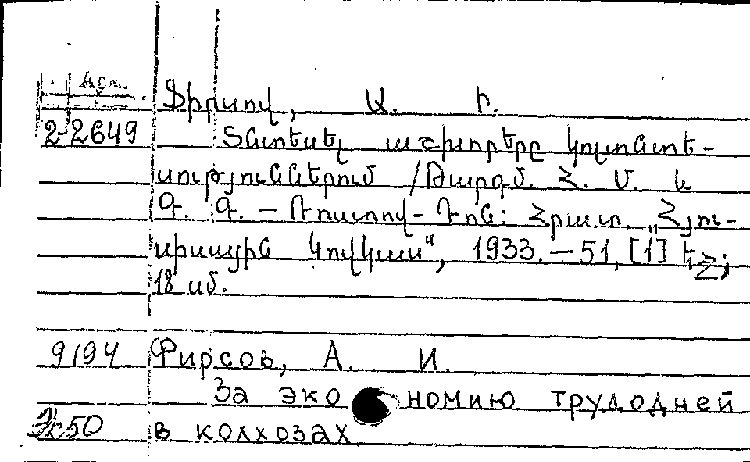 Ֆիրսով, Ա. Ի.
2-2649 Տնտեսել աշխօրերը կոլտնտե-
սություններում /Թարգմ. Հ. Մ. և
Գ. Գ. — Ռոստով-Դոն: Հրատ. „Հյու-
սիսային Կովկաս", 1933. — 51, [1] էջ;
18 սմ.
9194 Фирсов, А. И.
За экономию трудодней
50 в колхозах